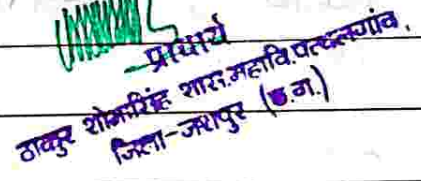 प्राचार्य
ठाकुर शोभासिंह शास.महावि.पत्थलगांव,
जिला-जशपुर (छ.ग.)